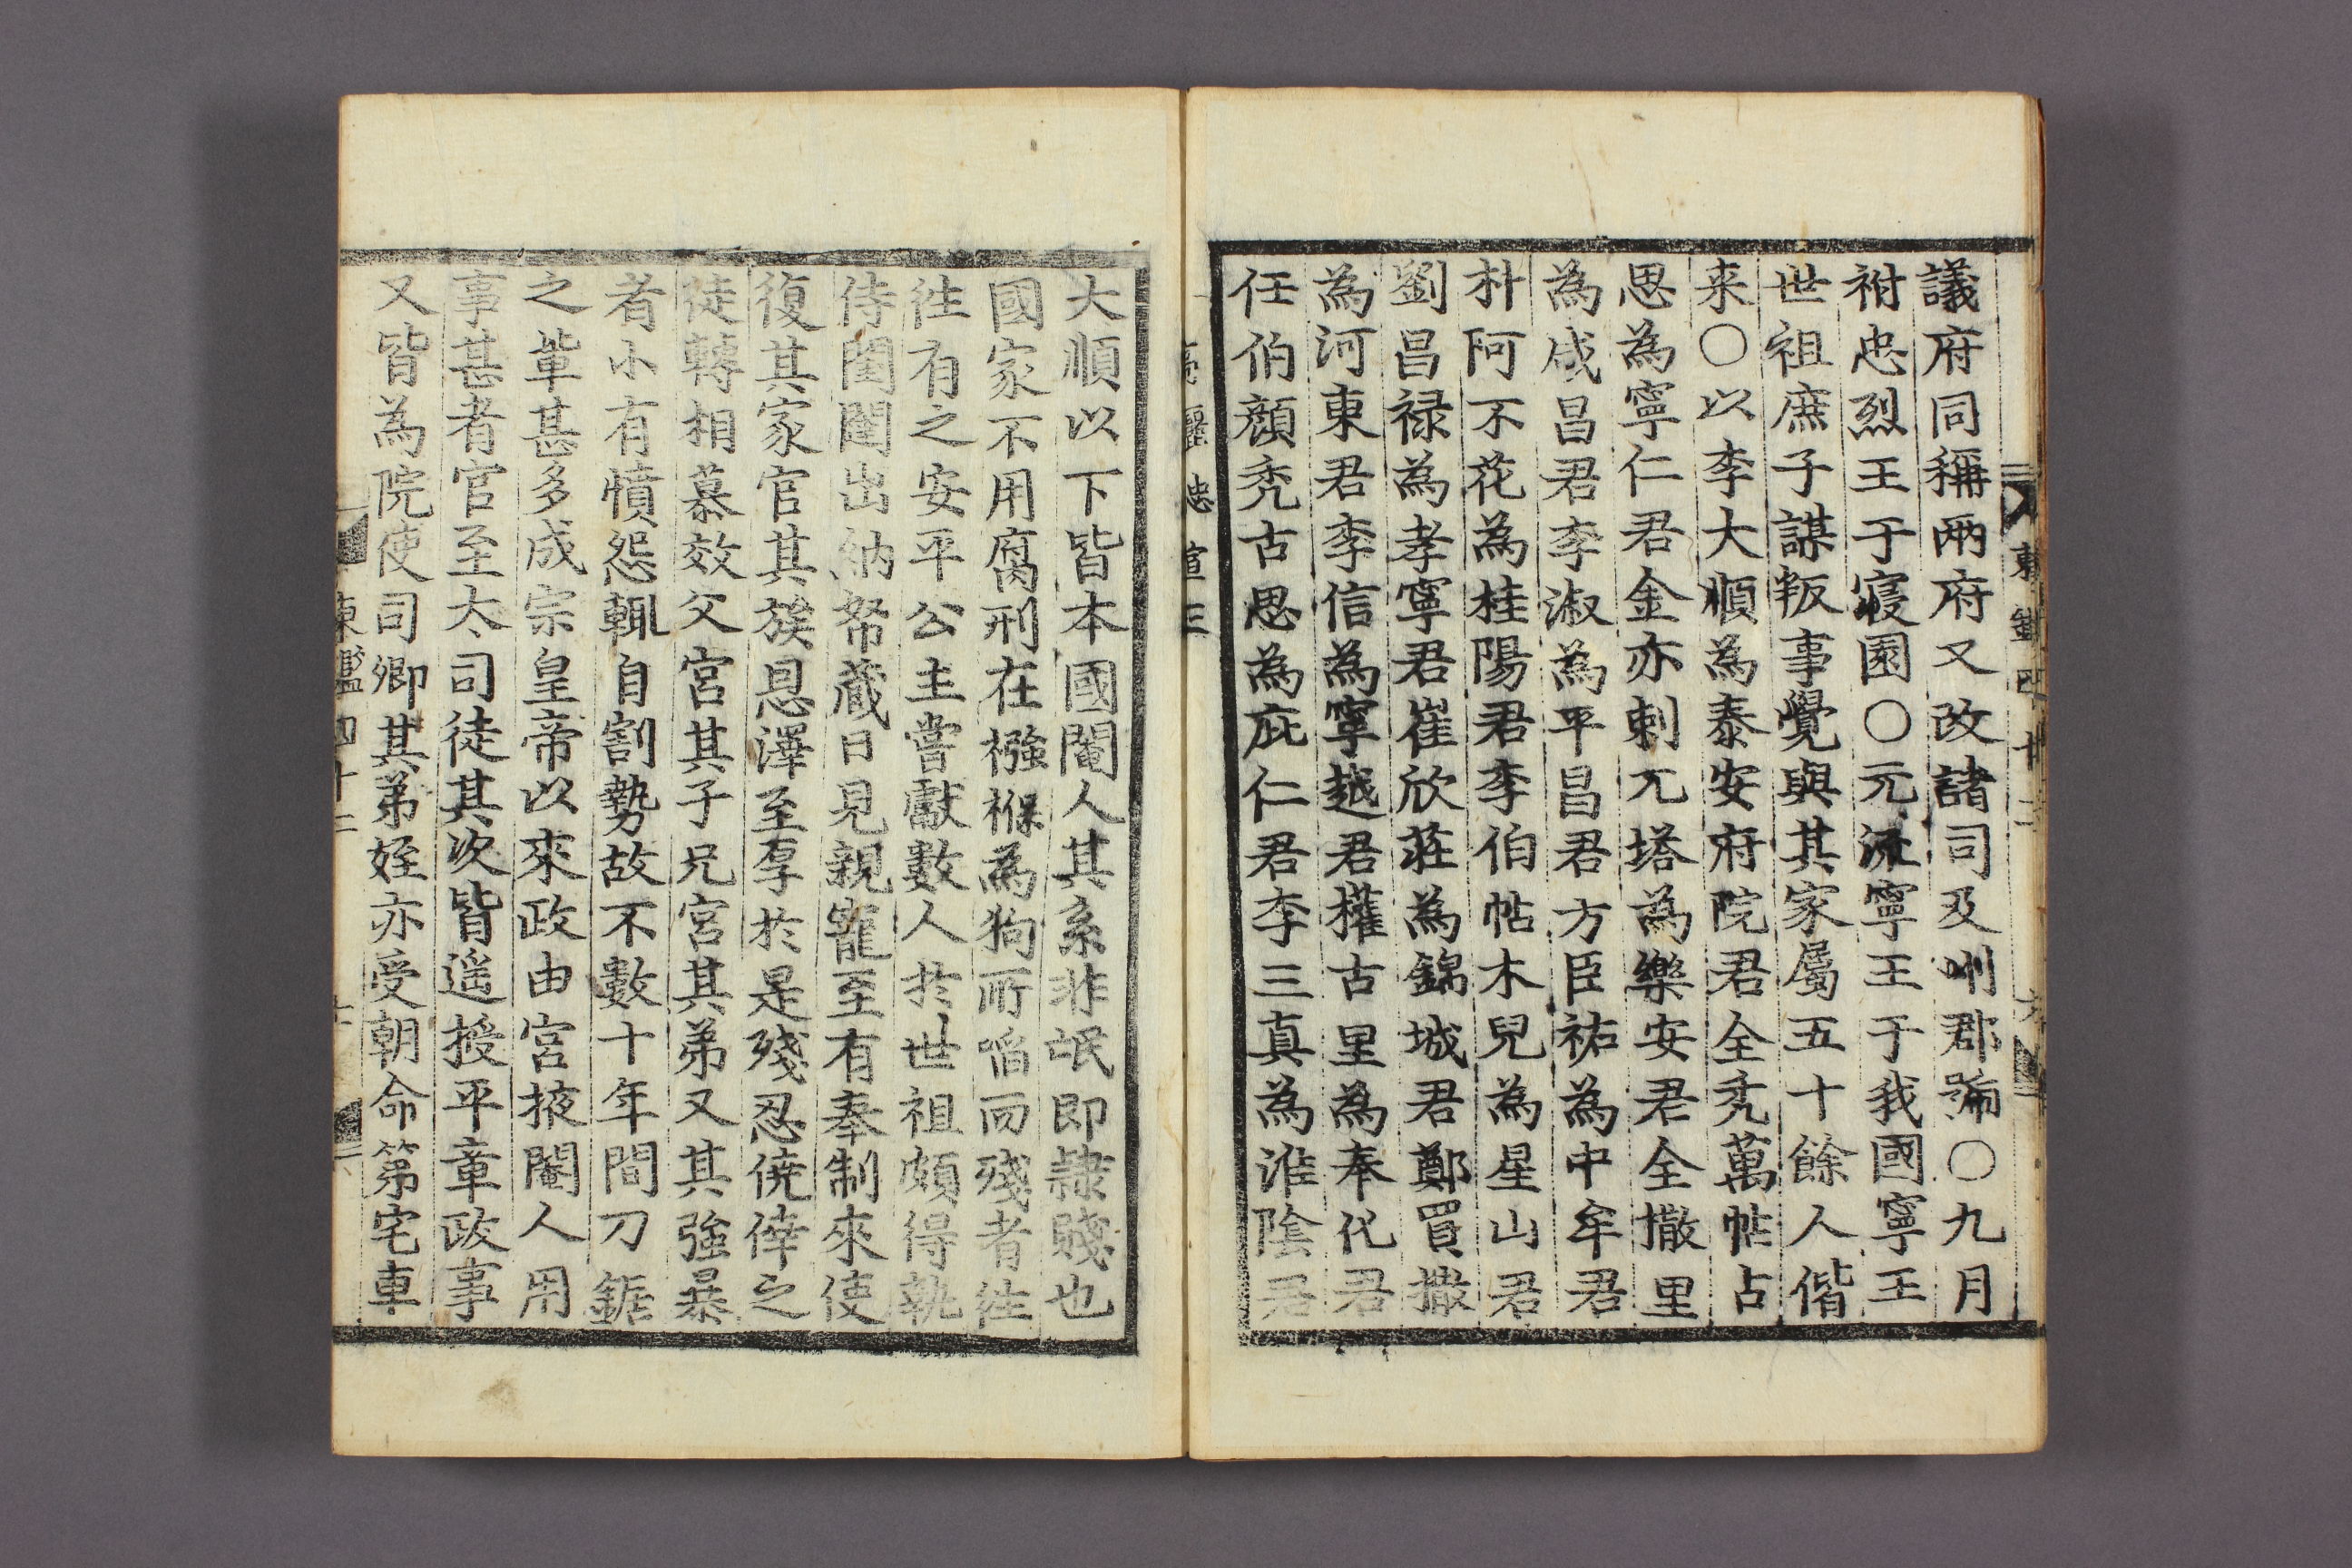 議府同稱兩府又改諸司及州郡號〇九月
祔忠烈王于寢園〇元流寧王于我國寧王
世祖庶子謀叛事覺與其家屬五十餘人偕
来〇以李大順為泰安府院君全禿萬帖古
思為寧仁君金亦剌兀塔為樂安君全撒里
為咸昌君李淑為平昌君方臣祐為中牟君
朴阿不花為桂陽君李伯帖木兒為星山君
劉昌祿為孝寧君崔欣莊為錦城君鄭買撒
為河東君李信為寧越君權古里為奉化君
任伯顏禿古思為庇仁君李三真為淮陰君
大順以下皆本國閹人其系非氓即隷賤也
國家不用腐刑在襁褓為狗所啗而殘者徃
徃有之安平公主嘗獻數人於世祖頗得執
侍閨闥出納帑蔵日見親寵至有奉制來使
復其家官其族恩澤至厚於是殘忍僥倖之
徒轉相慕效父宮其子兄宮其弟又其強暴
者小有憤怨輒自割勢故不數十年間刀鋸
之軰甚多成宗皇帝以來政由宮掖閹人用
事甚者官至大司徒其次皆遥授平章政事
又皆為院使司卿其弟姪亦受朝命第宅車
東鑑四十二